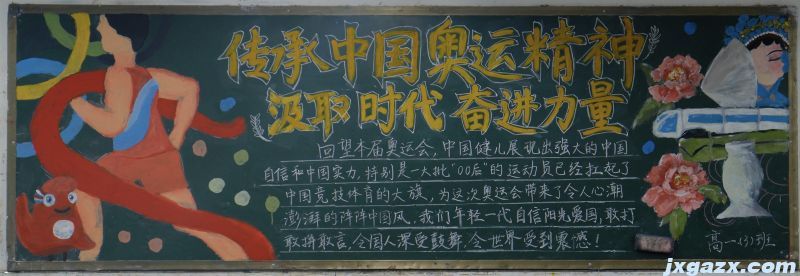 传承中国奥运精神
汲取时代奋进力量
回望本届奥运会,中国健儿展现出强大的中国
自信和中国实力,特别是一大批“00后”的运动员已经扛起了
中国竞技体育的大旗,为这次奥运会带来了令人心潮
澎湃的阵阵中国风。我们年轻一代自信阳光爱国,敢打
敢拼敢言,令国人深受鼓舞,令世界受到震感!
高一(3)班
jxgazx.com